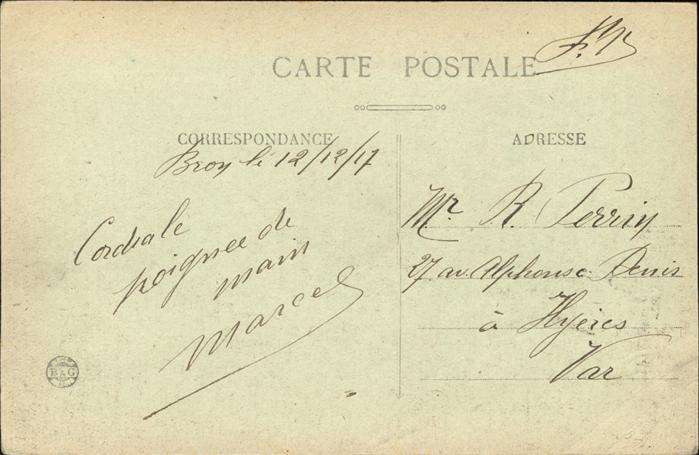 F. M
CARTE POSTALE
CORRESPONDANCE
Bron le 12/12/17
Cordiale
poignee de
main
Marcel
B&G
ADRESSE
Mr R. Perrin
27 av. Alphonse Denis
à Hyères
Var